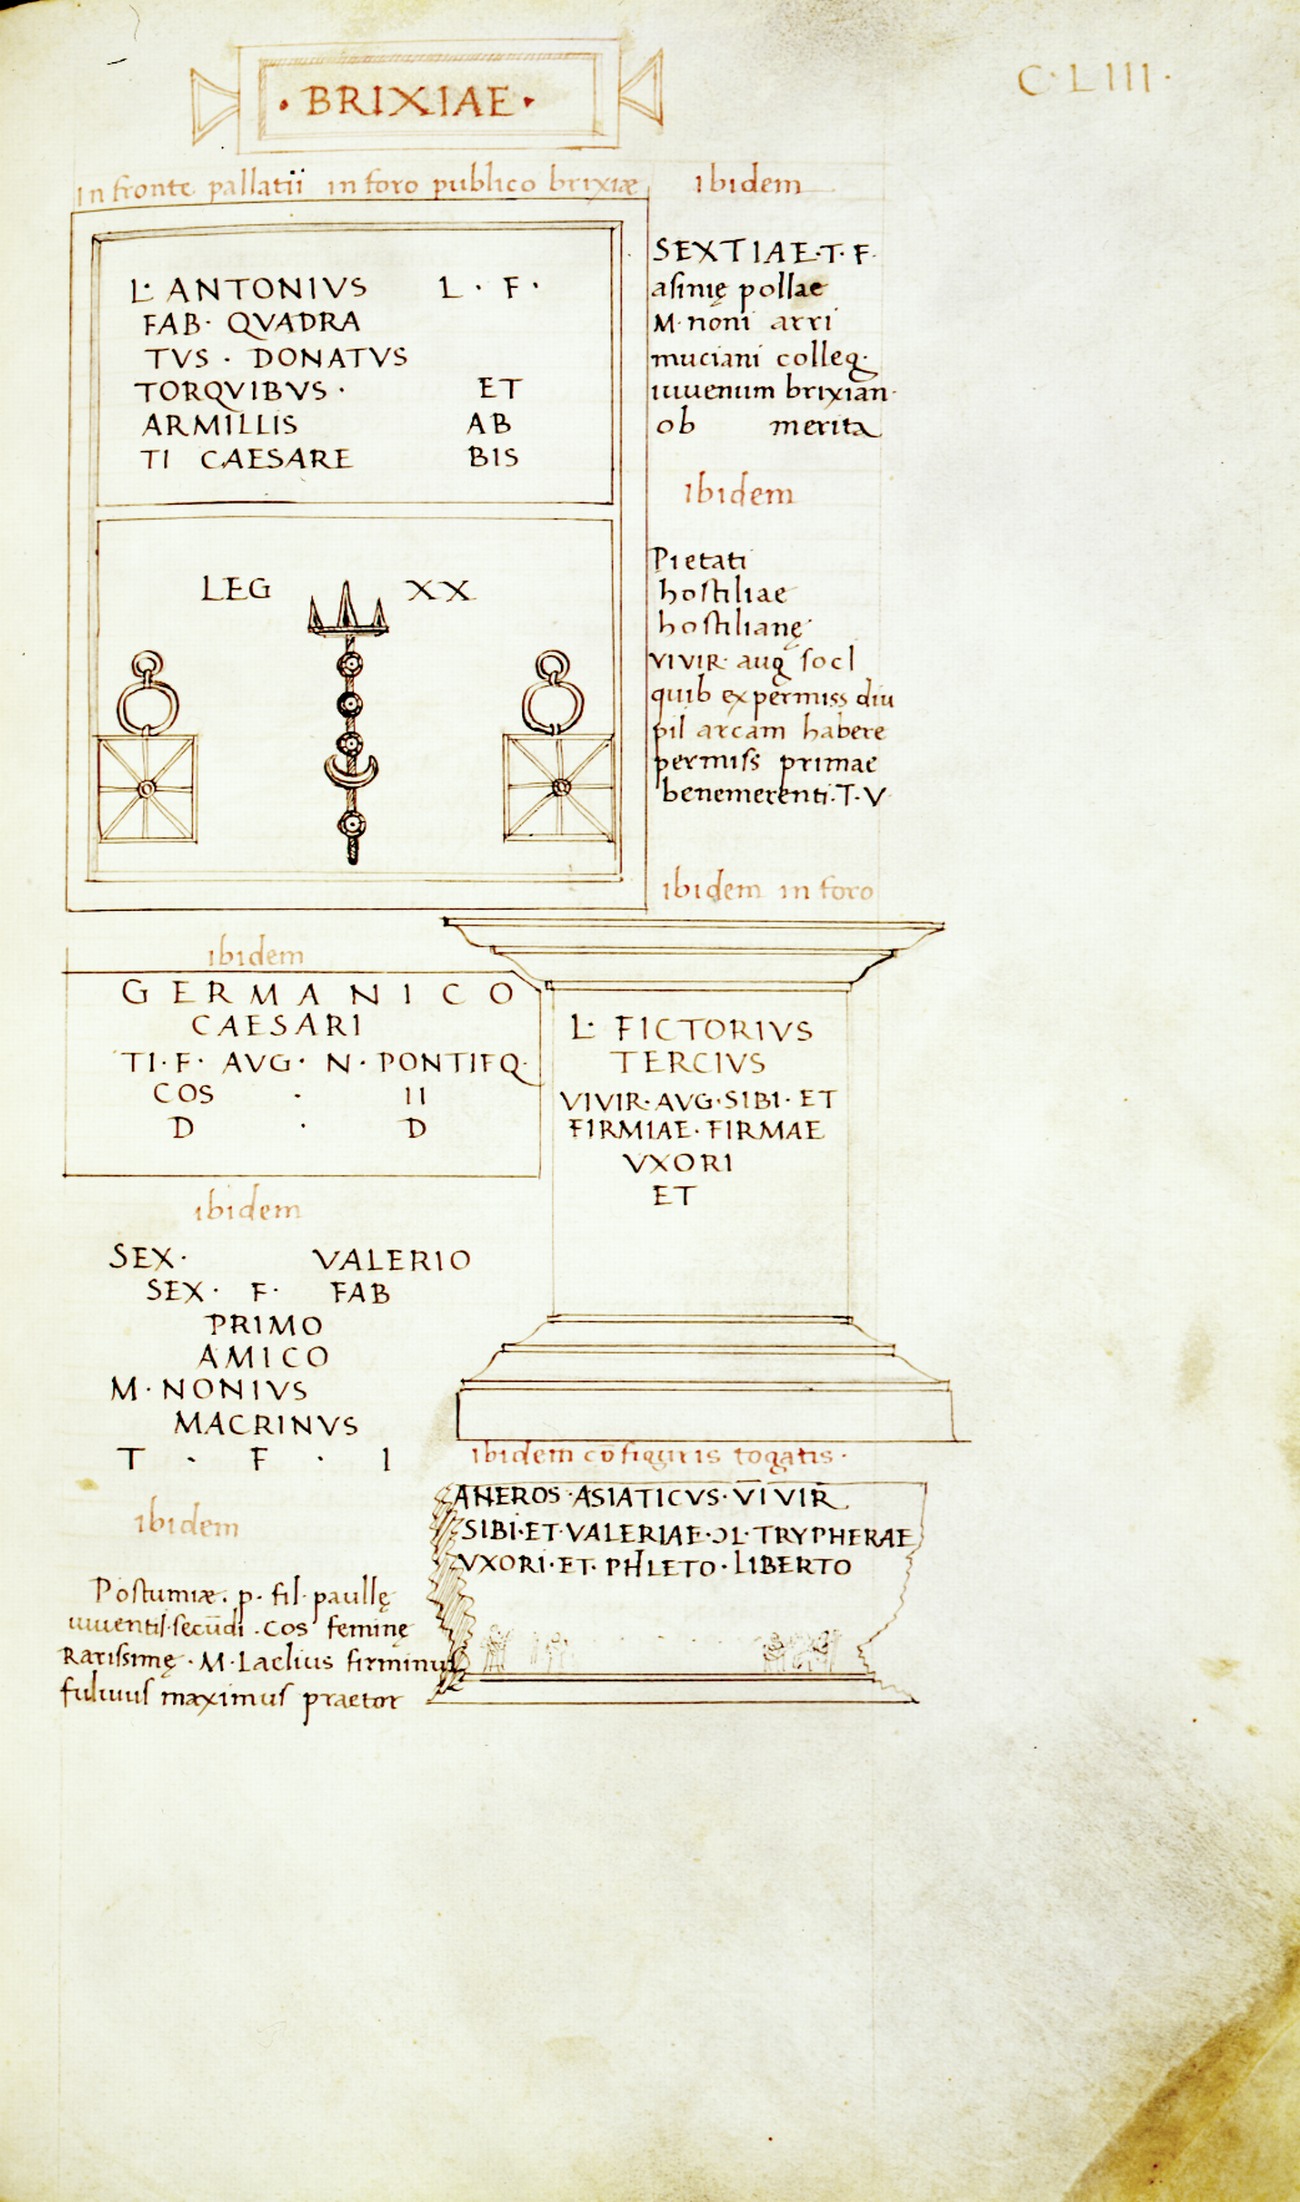 C·LIII·
·BRIXIAE·
in fronte pallatii in foro publico brixiæ
L· ANTONIVS L · F ·
FAB· QVADRA
TVS · DONATVS
TORQVIBVS · ET
ARMILLIS AB
TI CAESARE BIS
LEG XX
ibidem
SEXTIAE·T· F·
asinię pollae
M· noni arri
muciani colleg·
iuuenum brixian·
ob merita
ibidem
Pietati
hostiliae
hostilianę
VIVIR· aug socl
quib ex permiss diu
pil arcam habere
permiss primae
benemerenti·T·V
ibidem
GERMANICO
CAESARI
TI·F· AVG· N· PONTIFQ·
COS · II
D · D
ibidem in foro
L· FICTORIVS
TERCIVS
VIVIR·AVG·SIBI· ET
FIRMIAE·FIRMAE
VXORI
ET
ibidem
SEX· VALERIO
SEX· F· FAB
PRIMO
AMICO
M·NONIVS
MACRINVS
T · F · I
ibidem cū figuris togatis·
ANEROS·ASIATICVS·VIVIR
SIBI·ET·VALERIAE·ƆL·TRYPHERAE
VXORI·ET·PHLETO·LIBERTO
ibidem
Postumiæ· p· fil· paullę
iuuentil·secūdi ·Cos feminę
Rarissimę·M·Laelius firminus
fuluius maximus praetor